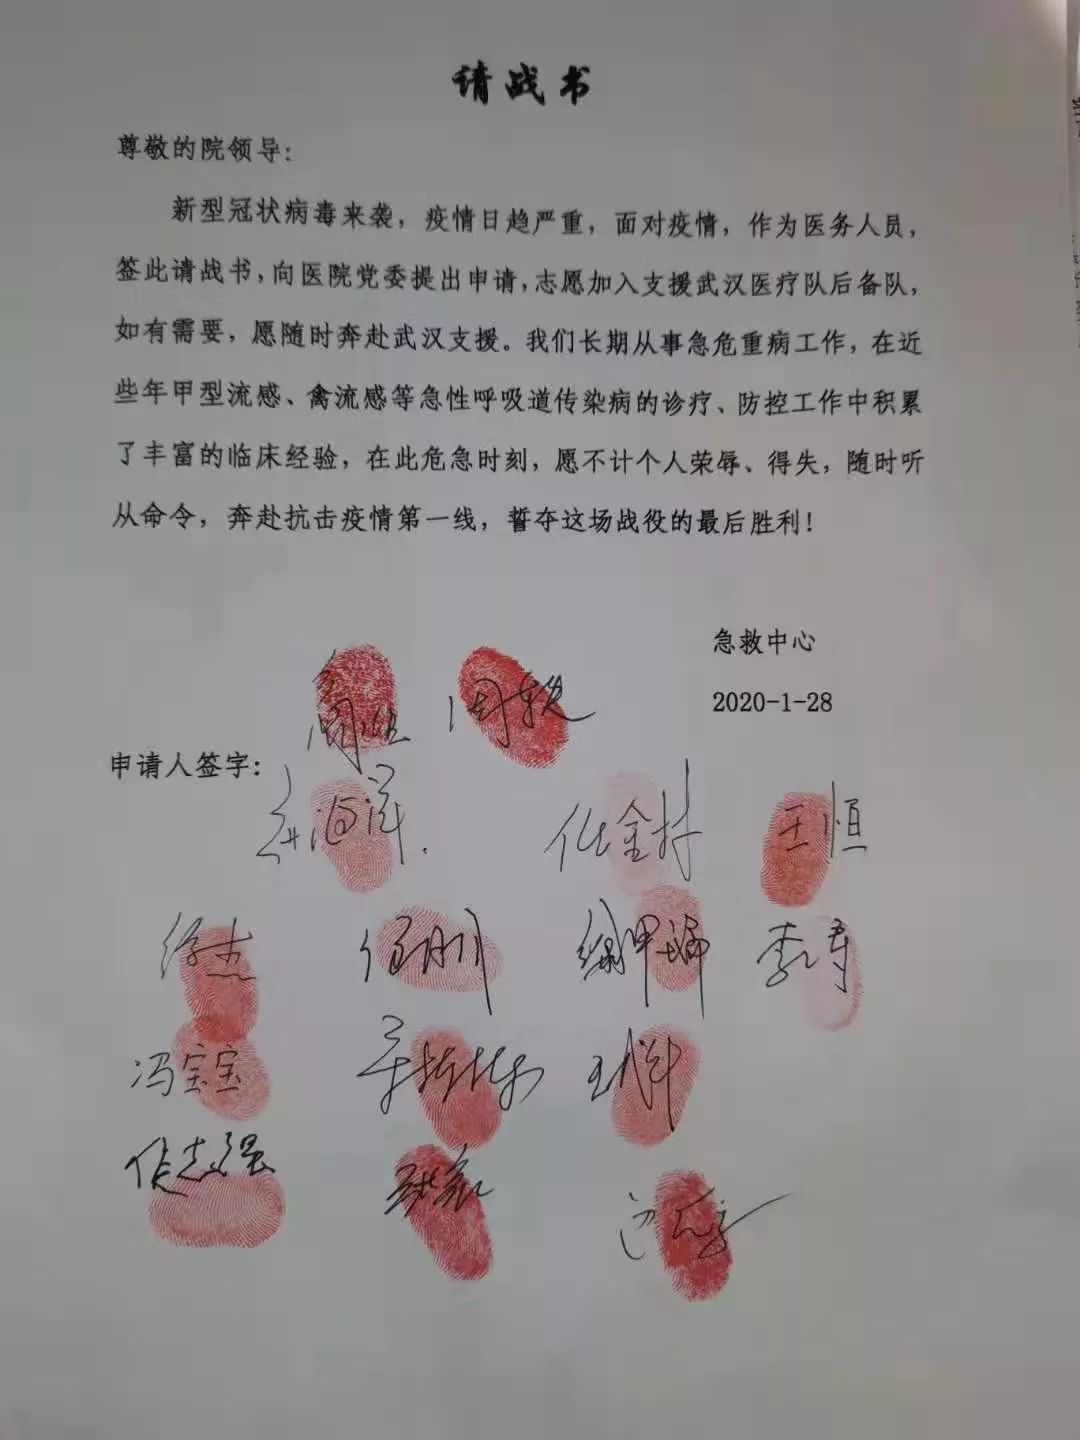 请战书
尊敬的院领导：
新型冠状病毒来袭，疫情日趋严重，面对疫情，作为医务人员，
签此请战书，向医院党委提出申请，志愿加入支援武汉医疗队后备队，
如有需要，愿随时奔赴武汉支援。我们长期从事急危重病工作，在近
些年甲型流感、禽流感等急性呼吸道传染病的诊疗、防控工作中积累
了丰富的临床经验，在此危急时刻，愿不计个人荣辱、得失，随时听
从命令，奔赴抗击疫情第一线，誓夺这场战役的最后胜利！
急救中心
2020-1-28
周轶
申请人签字：
王恒
徐杰
冯宝宝